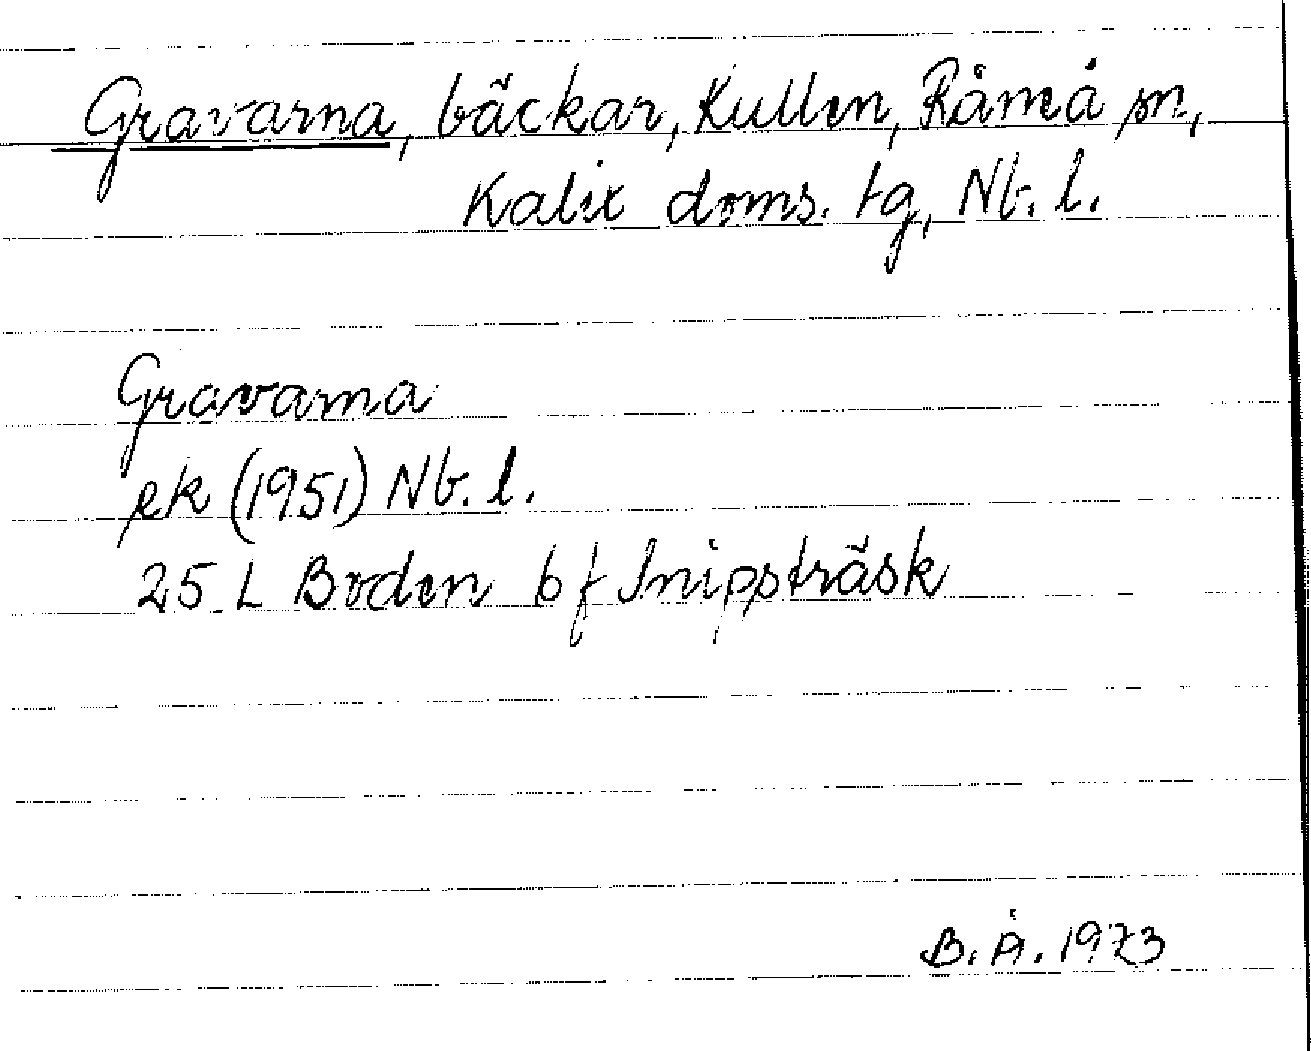 Gravarna, bäckar, Kullen, Råneå sn,
Kalix doms. tg, Nb. l.
Gravarna
ek (1951) Nb. l.
25 L Boden bf Snippsträsk
B. Å. 1973